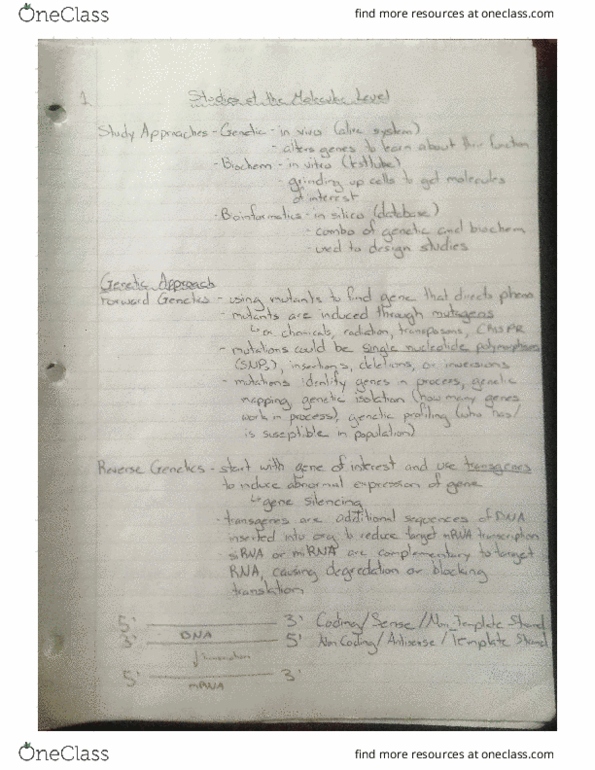 OneClass
find more resources at oneclass.com
1
Studies at the Molecular Level
Study Approaches - Genetic - in vivo (alive system)
- alters genes to learn about their function
- Biochem - in vitro (testtube)
- grinding up cells to get molecules
of interest
- Boinformatics - in silico (database)
- combo of genetic and biochem
- used to design studies
Genetic Approach
Forward Genetics - using mutants to find gene that directs pheno
- mutants are induced through mutagens
↳ chemicals, radiation, transposons, CRISPR
- mutations could be single nucleotide polymorphisms
(SNPs), insertions, deletions, or inversions
- mutations identify genes in process, genetic
mapping, genetic isolation (how many genes
work in process), genetic profiling (who has/
is susptible in population)
Reverse Genetics - start with gene of interest and use transgenes
to induce abnormal expression of gene
↳ gene silencing
- transgenes are additional sequences of DNA
inserted into org to reduce target mRNA transcription
- siRNA or miRNA are complementary to target
RNA, causing degredation or blocking
translation
5' 3' Coding/Sense/Non-Template Strand
DNA
3' 5' NonCoding/Antisense/Template Strand
↓
5' 3'
mRNA
OneClass
find more resources at oneclass.com